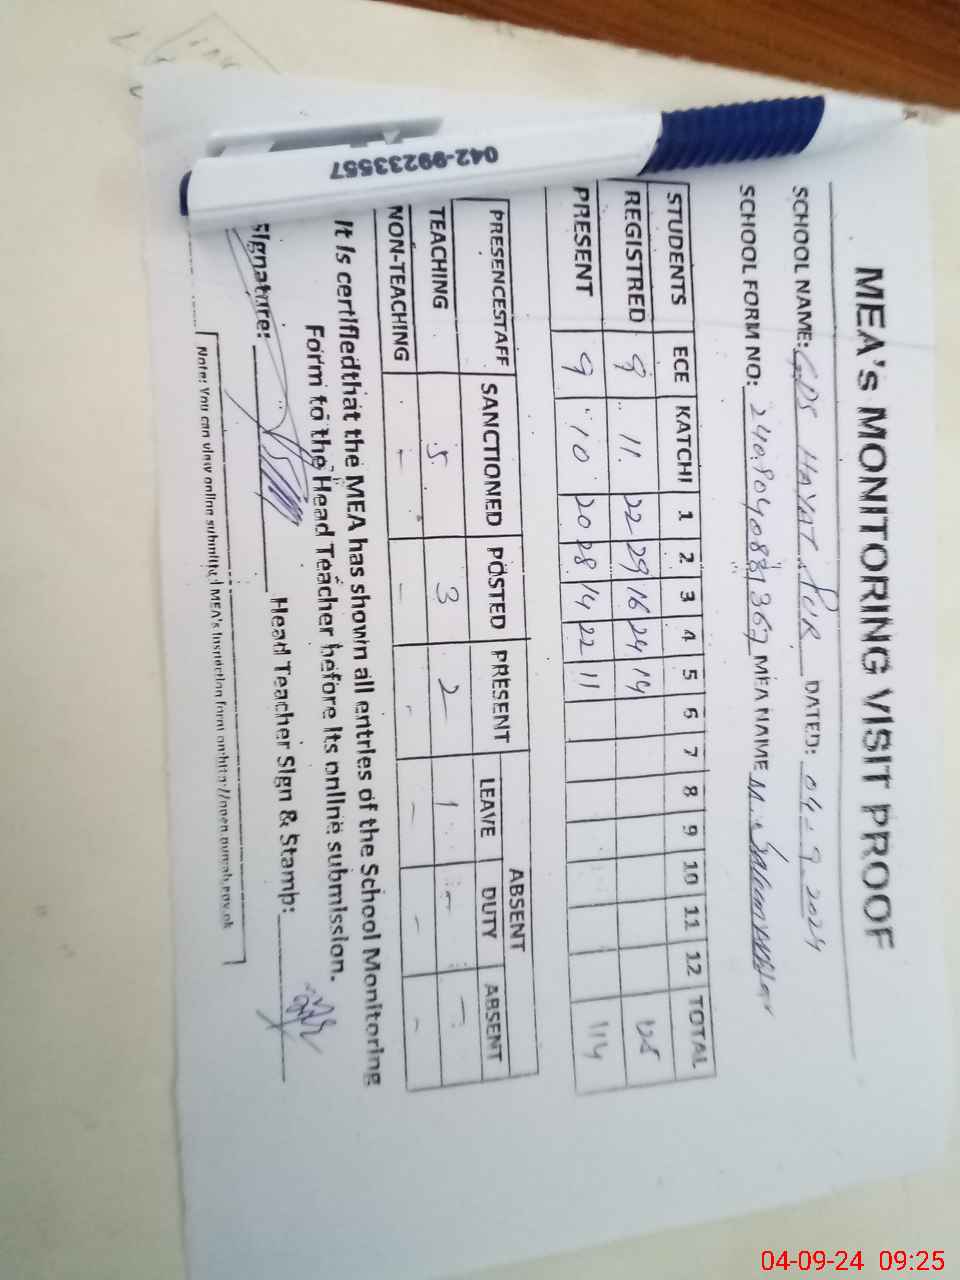 MEA's MONITORING VISIT PROOF
SCHOOL NAME: GPS HAYAT PUR DATED: 04-9-2024
SCHOOL FORM NO: MEA NAME M.
STUDENTS ECE KATCHI 1 2 3 4 5 6 7 8 9 10 11 12 TOTAL
REGISTRED 9 11 22 29 16 24 14 125
PRESENT 9 10 20 28 14 22 11 114
PRESENCESTAFF SANCTIONED POSTED PRESENT ABSENT
LEAVE DUTY ABSENT
TEACHING 5 3 2 1 - -
NON-TEACHING - - - - - -
It is certifiedthat the MEA has shown all entries of the School Monitoring
Form to the Head Teacher before its online submission.
Signature: Head Teacher Sign & Stamp:
Note: You can view online submitted MEA's Inspection form on http://open.punjab.gov.pk
042-99233557
04-09-24 09:25